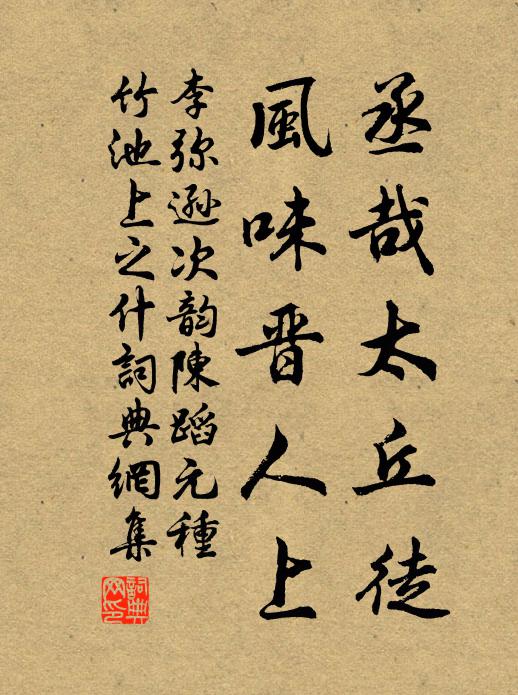 丞哉太丘徒
風味晋人上
李弥遜次韵陳蹈元種
竹池上之什詞典網集
詞典网印